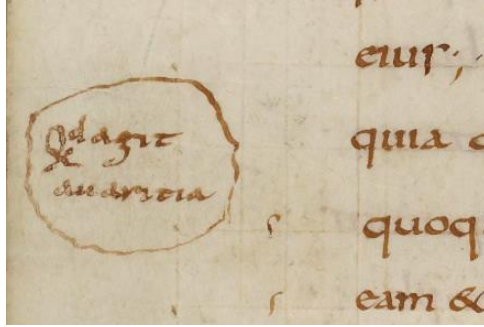 Qd agit
auaritia
eius;
quia
quoq
eam &